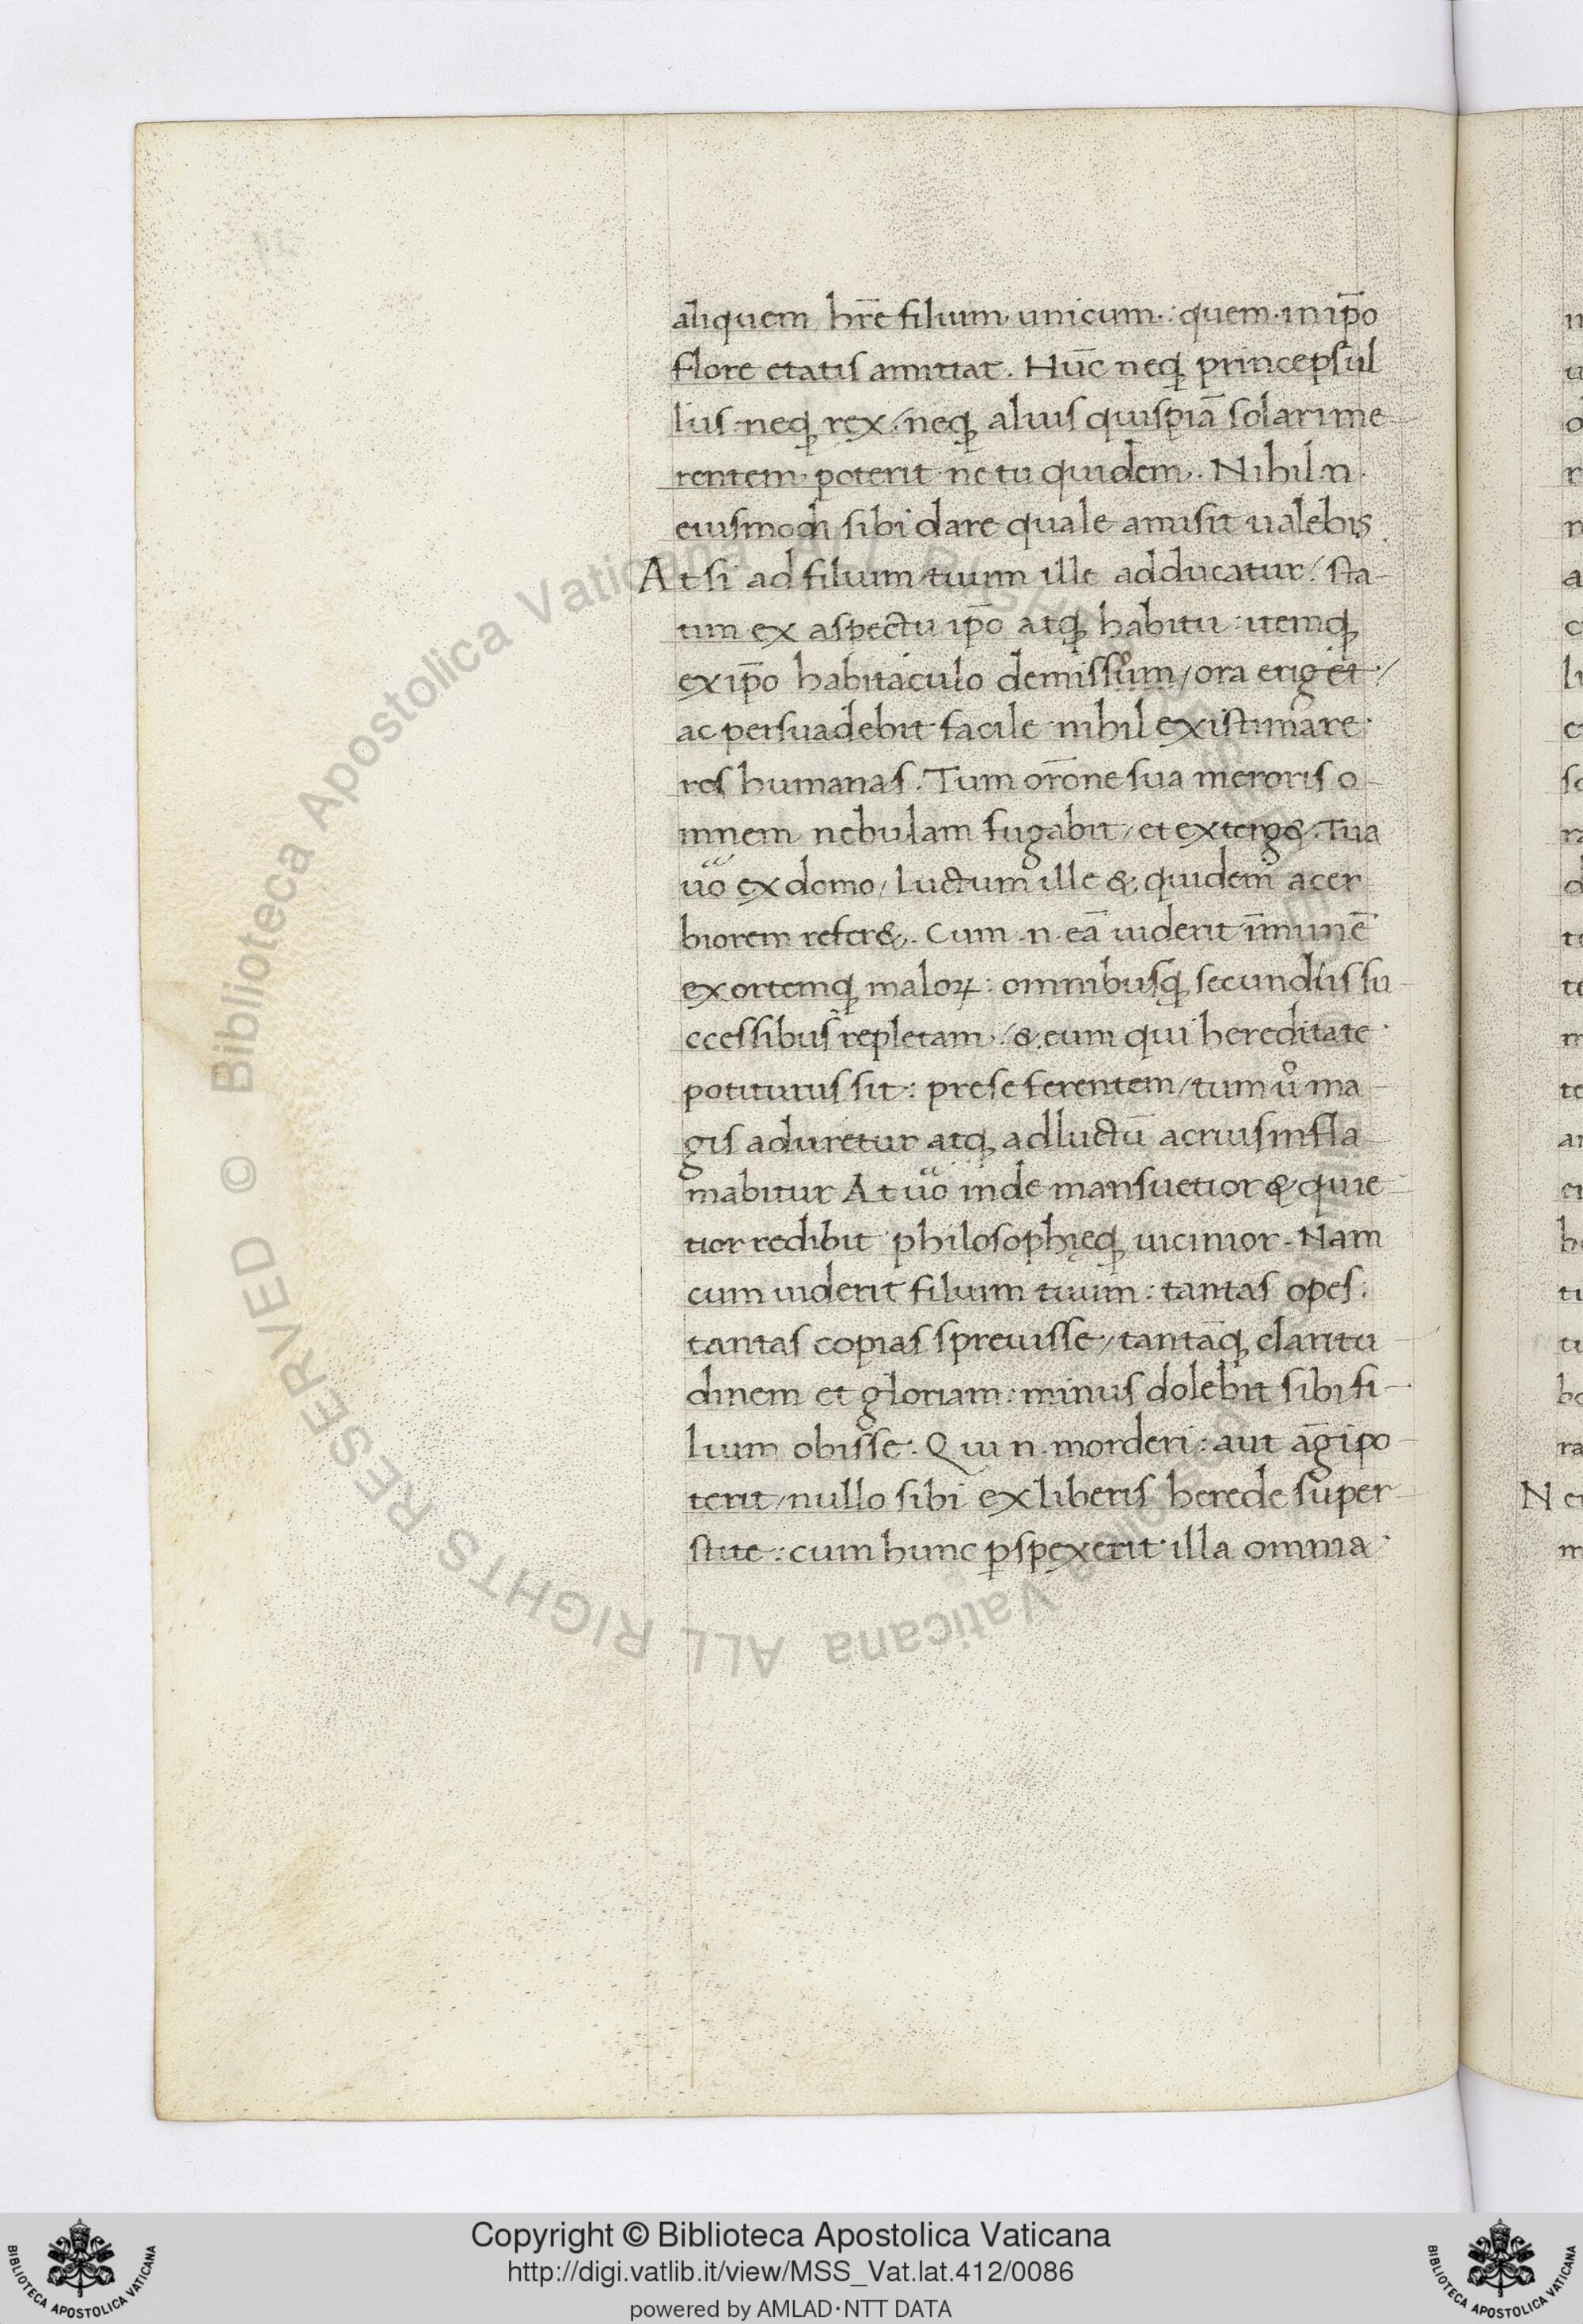 aliquem hr̄e filium· unicum·: quem· in ip̄o
flore etatis amittat. Hūc neqꝫ princeps ul
lus· neqꝫ rex/ neqꝫ alius quispiā solari me
rentem· poterit· ne tu quidem·. Nihil·n·
eiusmodi sibi dare quale amisit ualebis
At si ad filium tuum ille adducatur/ sta-
tim ex aspectu ip̄o atqꝫ habitu· itemqꝫ
ex ip̄o habitaculo demissum/ ora eriget·/
ac persuadebit facile nihil existimare·
res humanas. Tum or̄one sua meroris o-
mnem nebulam fugabit/ et exterg&. Tua
uo ex domo/ luctum ille & quidem acer
biorem refer&. Cum ·n· eā uiderit īmunē
exortemqꝫ maloꝝ: omnibusqꝫ secundius su-
ccessibus repletam·/ & eum qui hereditate·
potiturus sit: prese ferentem/ tum uͦ ma-
gis aduretur atqꝫ ad luctū acrius infla-
mabitur At uo inde mansuetior & quie-
tior redibit philosophięqꝫ uicinior- Nam
cum uiderit filium tuum: tantas opes:
tantas copias spreuisse/ tantāqꝫ claritu-
dinem et gloriam: minus dolebit sibi fi-
lium obisse·. Qui n· morderi: aut āgi po-
terit/ nullo sibi ex liberis herede super-
stite: cum hunc ꝑspexerit· illa omnia·
Biblioteca Apostolica Vaticana ALL RIGHTS RESERVED ©
Copyright © Biblioteca Apostolica Vaticana
http://digi.vatlib.it/view/MSS_Vat.lat.412/0086
powered by AMLAD·NTT DATA
BIBLIOTECA APOSTOLICA VATICANA
BIBLIOTECA APOSTOLICA VATICANA